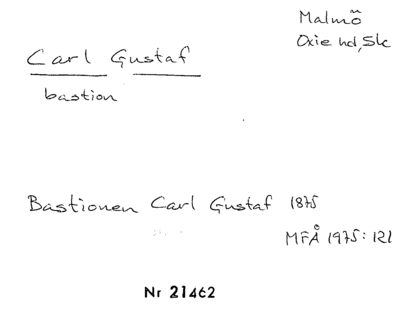 Malmö
Oxie hd, Sk
Carl Gustaf
bastion
Bastionen Carl Gustaf 1875
MFÅ 1975: 121
Nr 21462